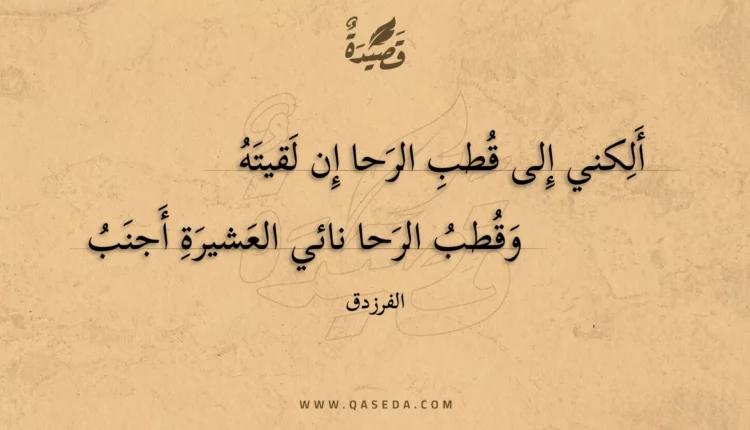 قَصِيدَةٌ
أَلِكني إِلى قُطبِ الرَحا إِن لَقيتَهُ
وَقُطبُ الرَحا نائي العَشيرَةِ أَجنَبُ
الفرزدق
WWW.QASEDA.COM